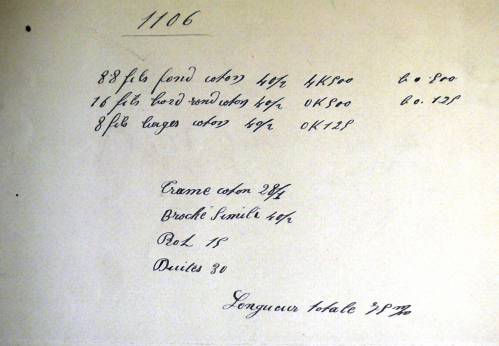 1106
88 fils fond coton 40/2 4K500 bo. 500
16 fils bord rond coton 40/2 0K500 bo. 125
8 fils liages coton 40/2 0K125
Trame coton 28/1
Broché Simili 40/2
Rot 15
Duites 30
Longueur totale